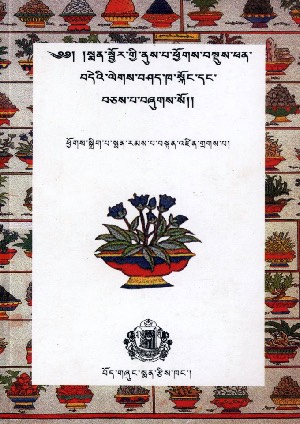 ༄༅། །སྨན་སྦྱོར་གྱི་ནུས་པ་ཕྱོགས་བསྡུས་ཕན་
བདེའི་ལེགས་བཤད་ཁ་སྐོང་དང་
བཅས་པ་བཞུགས་སོ།།
ཕྱོགས་སྒྲིག་པ་སྨན་རམས་པ་བསྟན་འཛིན་གྲགས་པ།
བོད་གཞུང་སྨན་རྩིས་ཁང་།